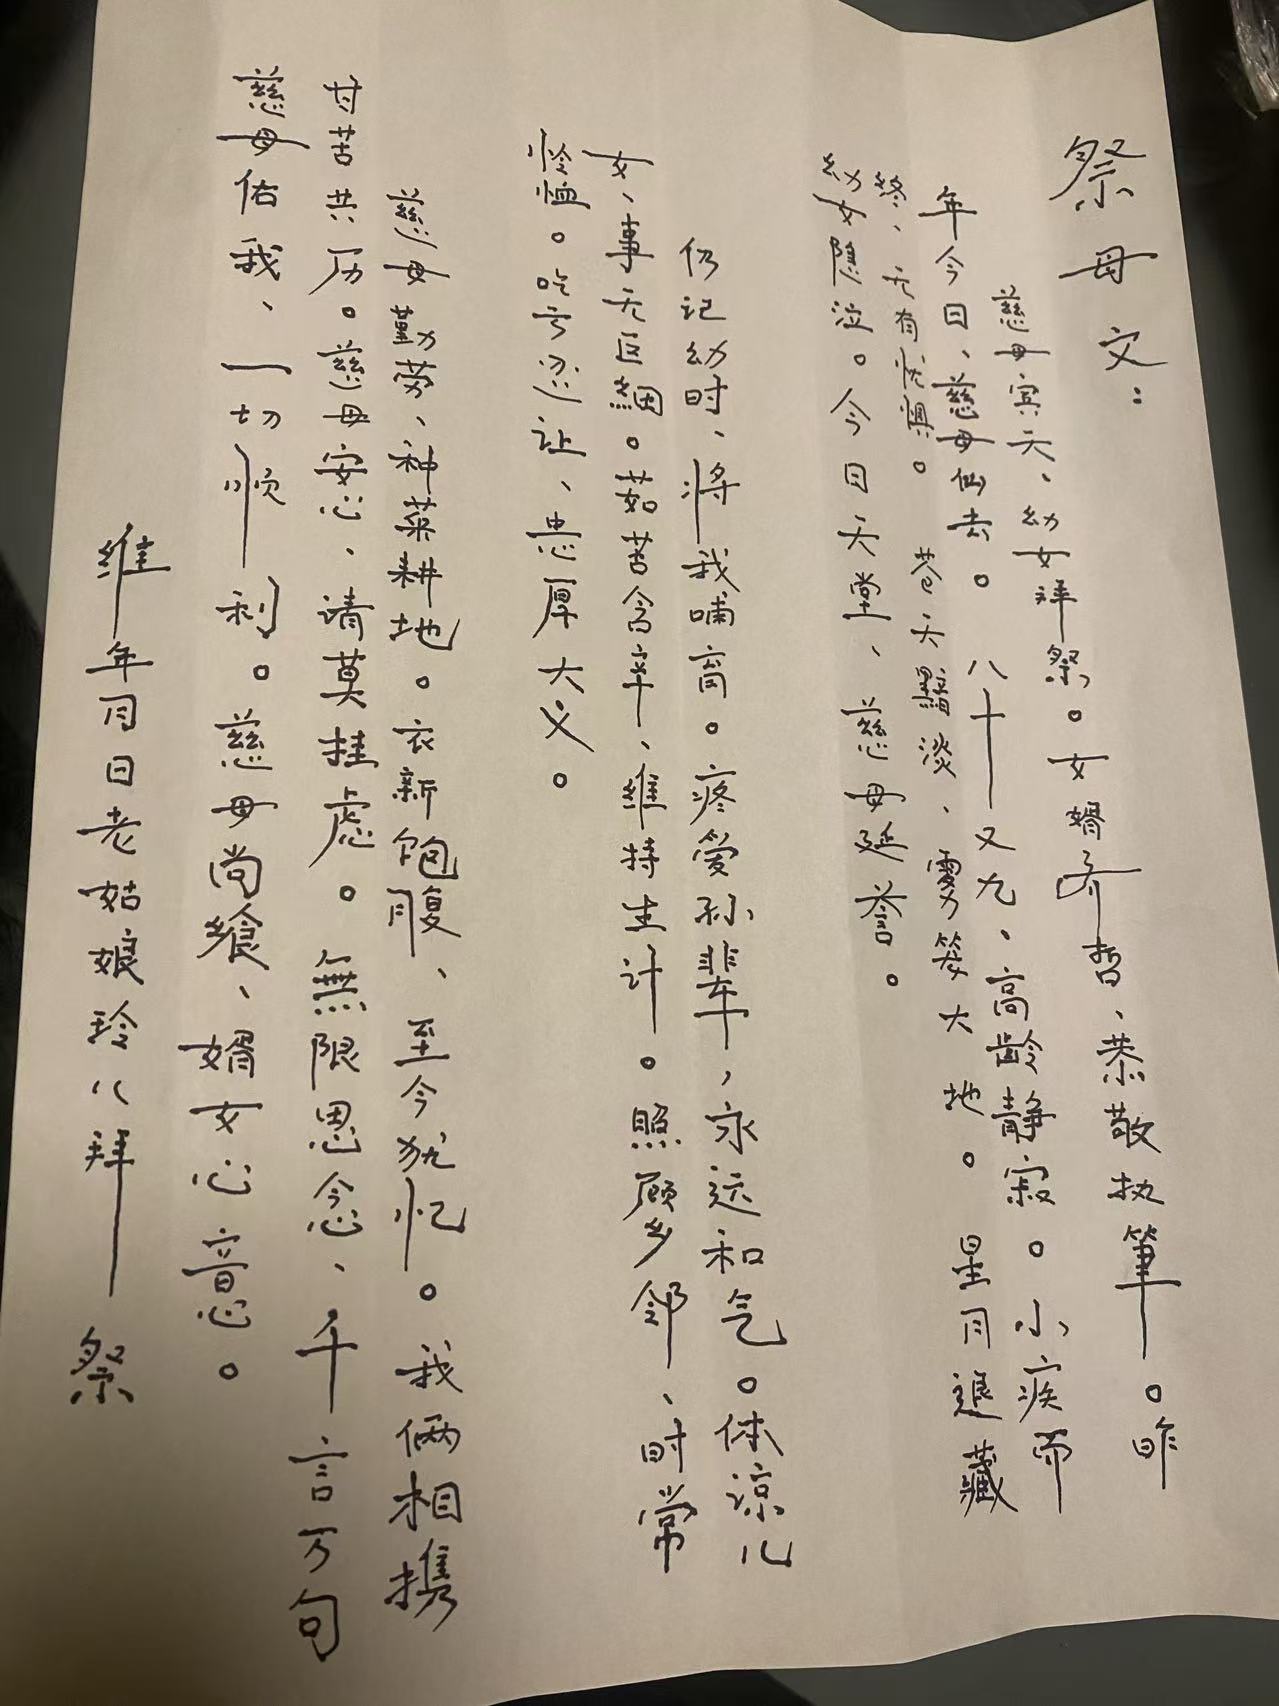 祭母文：
慈母宾天、幼女拜祭。女婿齐哲、恭敬执筆。昨
年今日、慈母仙去。八十又九，高龄静寂。小疾而
终、无有忧惧。苍天黯淡、雾笼大地。星月退藏
幼女隐泣。今日天堂、慈母延誉。
仍记幼时、将我哺育。疼爱孙辈，永远和气。体谅儿
女、事无巨細。茹苦含辛、维持生计。照顾乡邻、时常
怜恤。吃亏忍让、忠厚大义。
慈母勤劳、种菜耕地。衣新饱腹、至今犹忆。我俩相携
甘苦共历。慈母安心、请莫挂虑。無限思念、千言万句
慈母佑我、一切顺利。慈母尚飨、婿女心意。
维年月日老姑娘玲儿拜祭